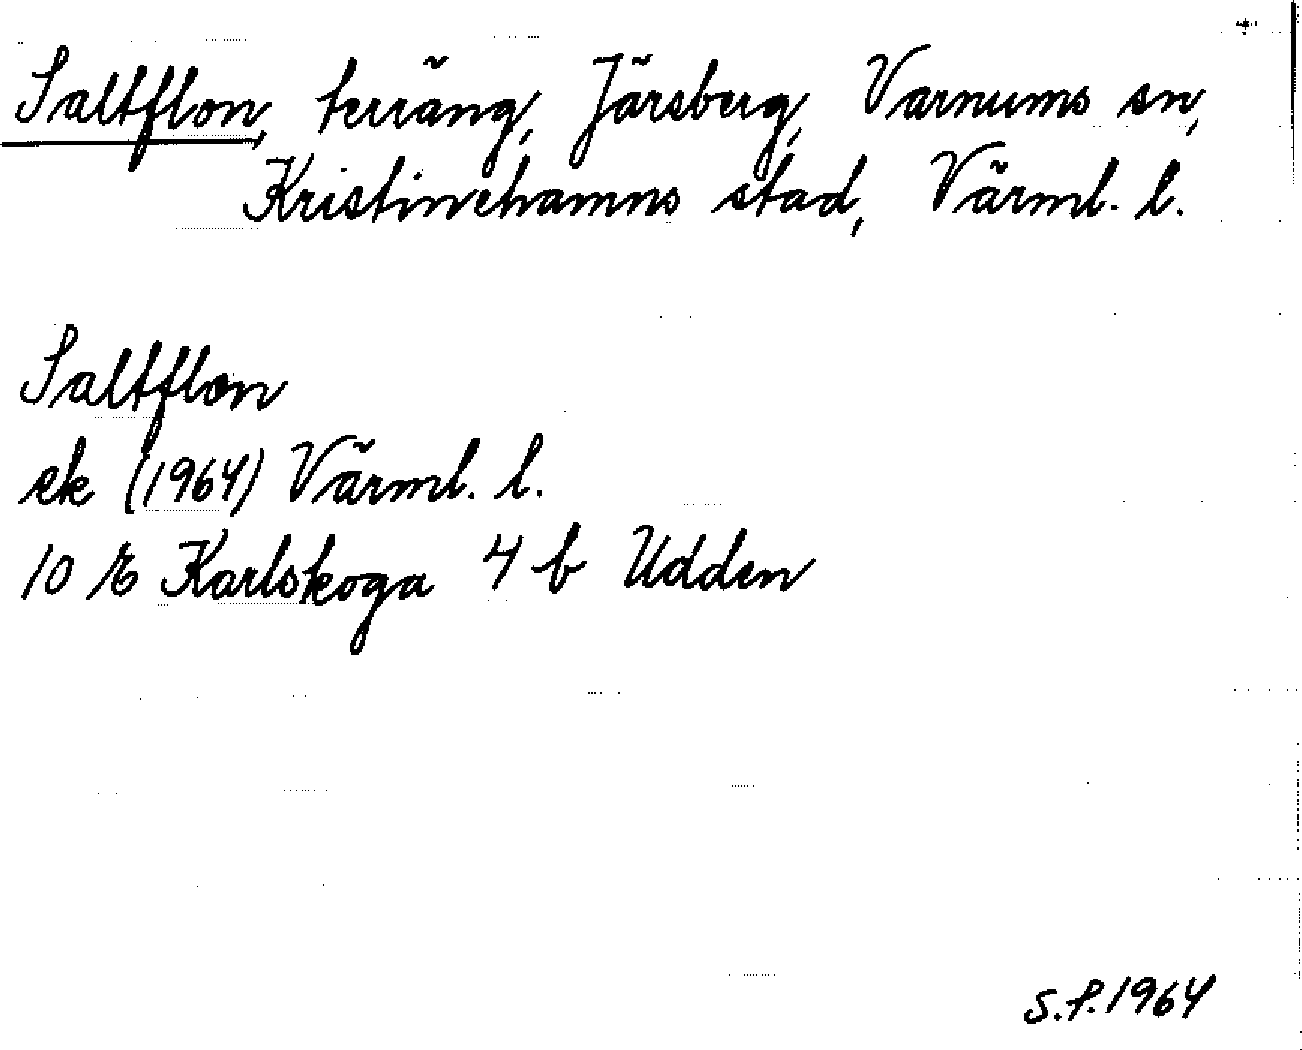 Saltflon, terräng, Järsberg, Varnums sn,
Kristinehamns stad, Värml. l.
Saltflon
ek (1964) Värml. l.
10 E Karlskoga 4 b Udden
S.P. 1964